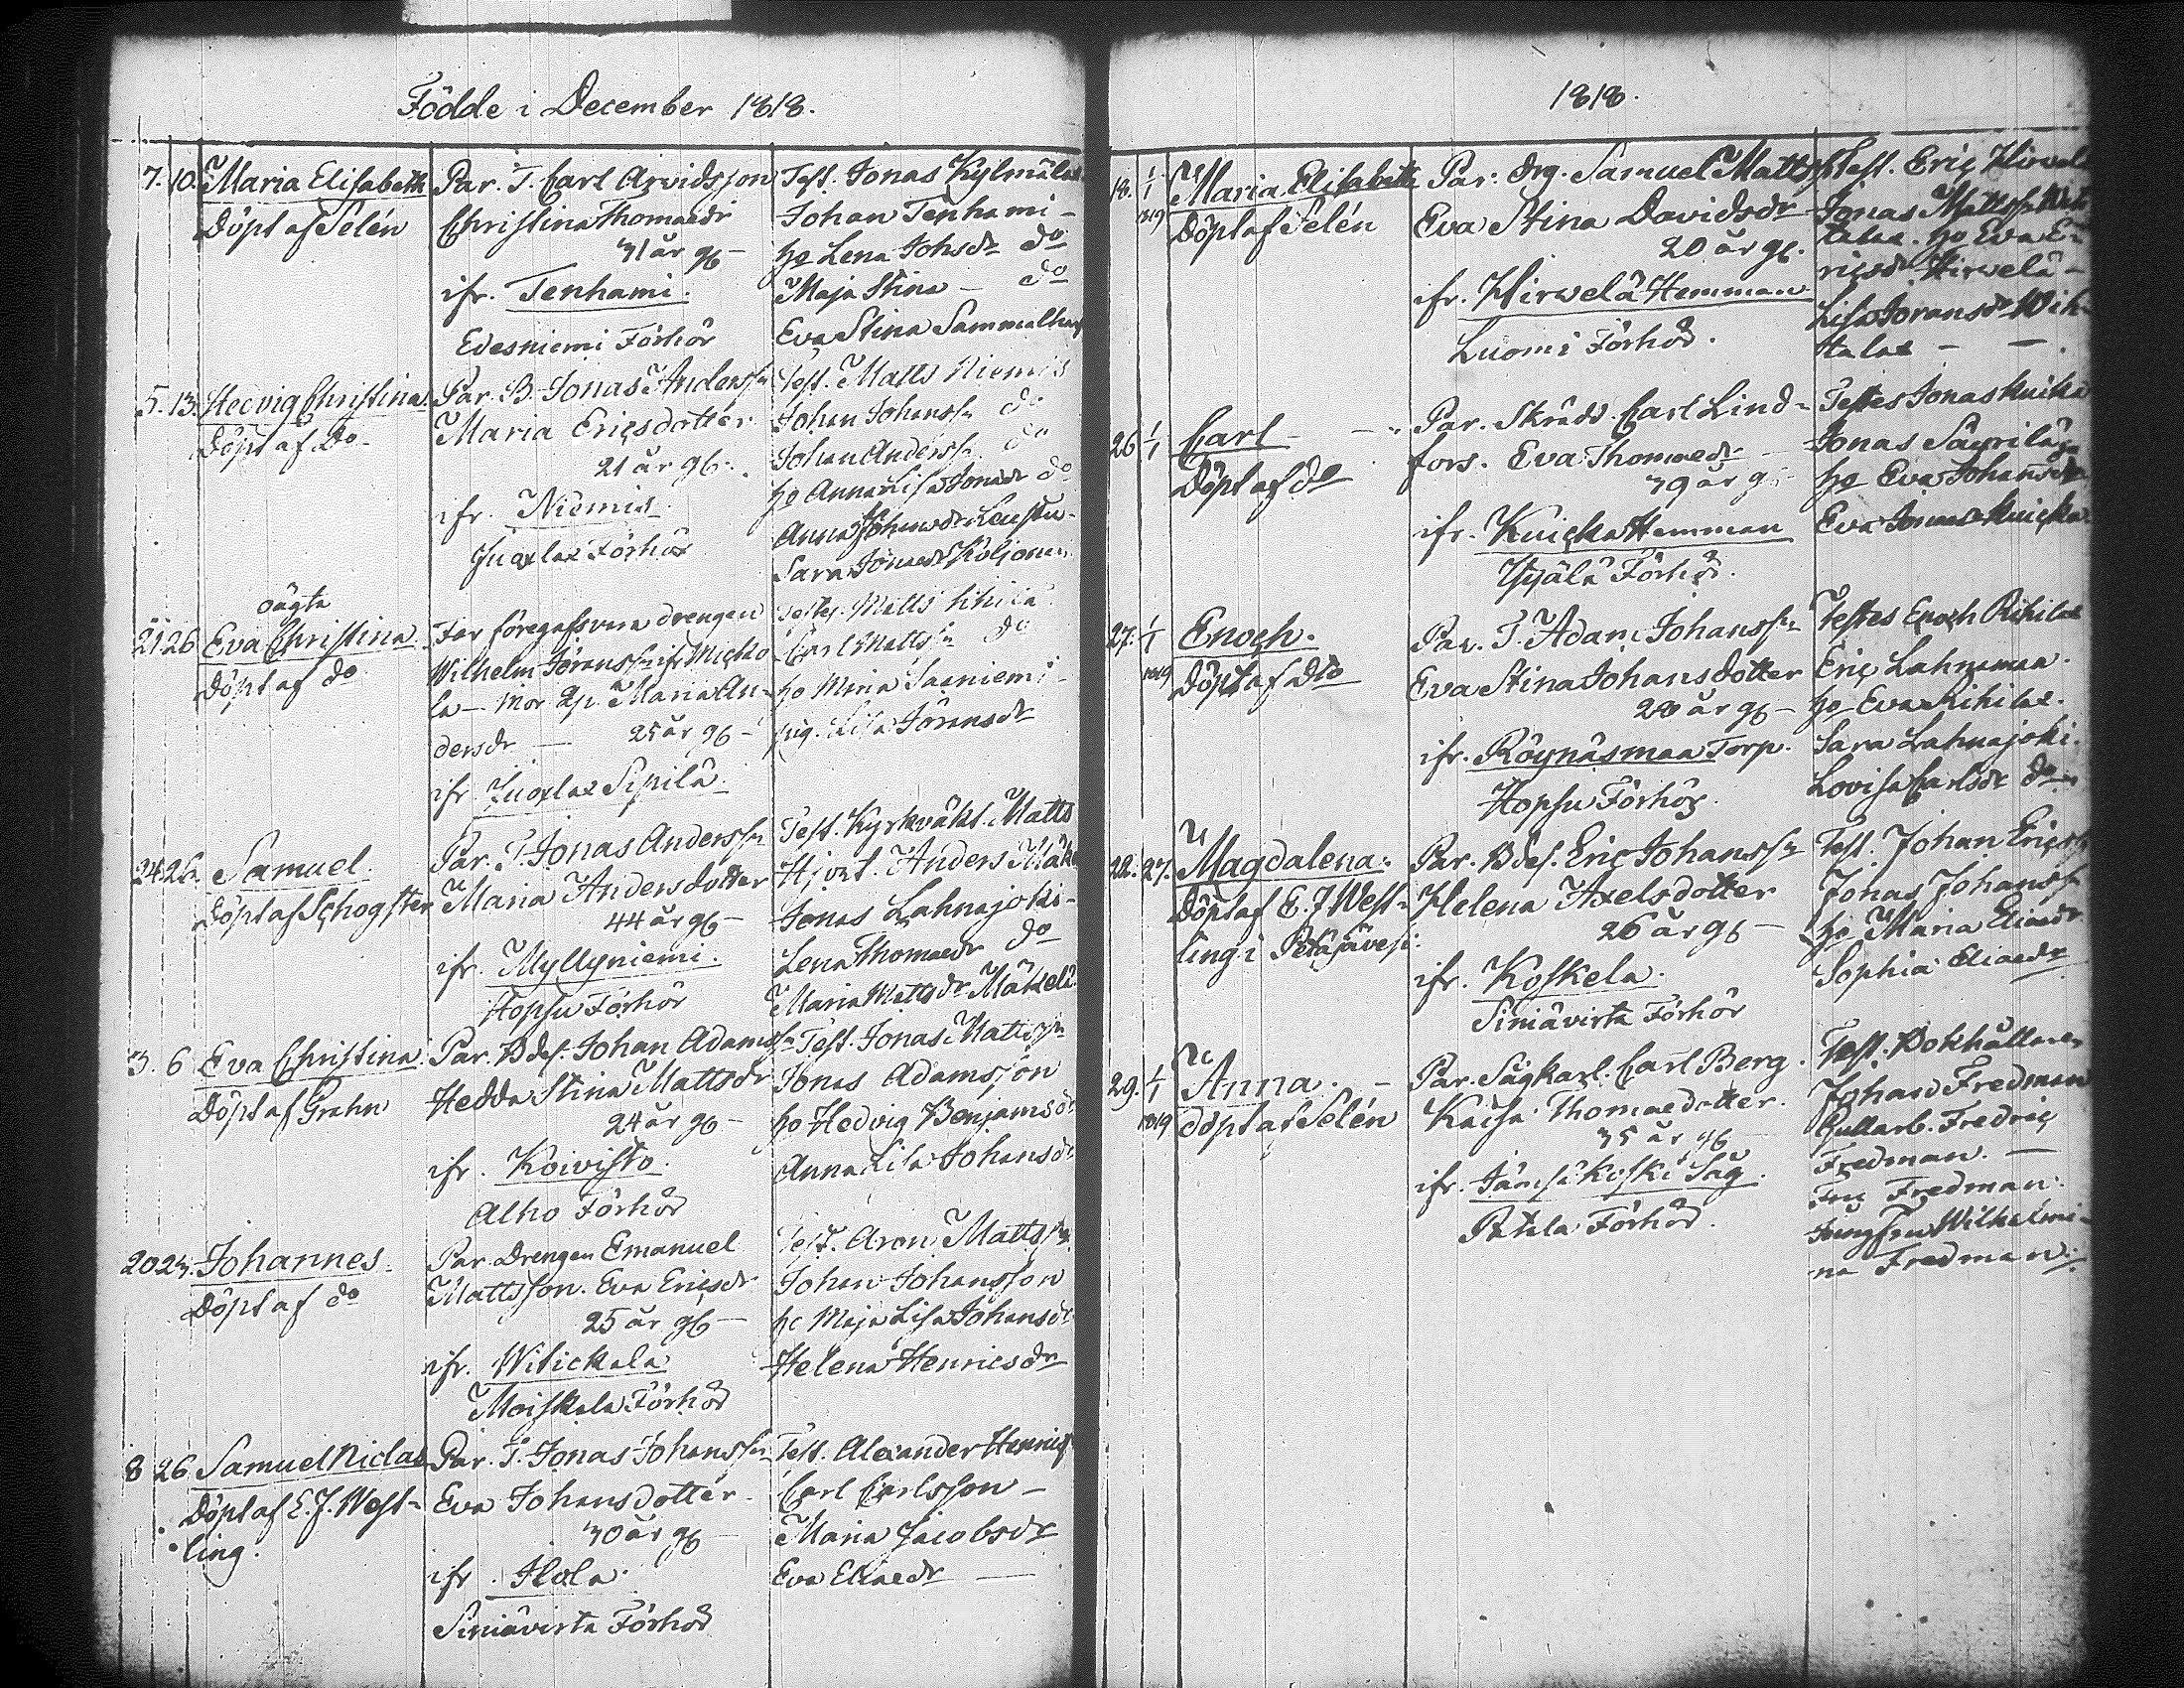 Födde i December 1818.
7. 10. Maria Elisabeth
Döpt af Selén
Par. T. Carl Arvidsson
Christina Thomaedr
31 år gb –
ifr. Tenhami.
Edesniemi Förhör
Test. Jonas Kylmälax
Johan Tenhami –
ho Lena Johsdr do
Maja Stina – do
Eva Stina Sammalharj
5. 13. Hedvig Christina.
Döpt af Do.
Par. B. Jonas Anderss:n
Maria Ericsdotter
21 år gb.
ifr. Niemis.
Juoxlax Förhör
Test. Matts Niemis
Johan Johanss:n do
Johan Anderss:n do
ho Anna Lisa Jonaedr do
Anna Johansdr
Sara Jonaedr Koljonen
oägta
21. 26 Eva Christina.
Döpt af do
Far föregafs vara drengen
Wilhelm Jöranss:n ifr. Micko
la – Mor Maria An-
dersdr — 25 år gb –
ifr. Juoxlax Sipilä.
Testes. Matts
Carl Matts:n do
ho Mina Saaniemi –
pig. Lisa Jöransdr
24. 26. Samuel.
Döpt af Schogster
Par. T. Jonas Anderss:n
Maria Andersdotter
44 år gb –
ifr. Myllyniemi.
Hopsu Förhör
Test. Kyrkväkt. Matts
Hjort. Anders Mäke
Jonas Lahnajoki –
Lena Thomaedr do
Maria Mattsdr Mäkelä
3. 6 Eva Christina.
Döpt af Grahn
Par. Bdes. Johan Adamss:n
Hedda Stina Mattsdr
24 år gb –
ifr. Koivisto.
Alho Förhör
Test. Jonas Matts:n
Jonas Adamsson
ho Hedvig Benjamsdr
Anna Lisa Johansdr
20 27. Johannes.
Döpt af do
Par. Drengen Emanuel
Mattsson. Eva Ericsdr
25 år gb —
ifr. Witickala
Moiskala Förhör
Test. Aron Matts:n
Johan Johansson
ho Maja Lisa Johansdr
Helena Henricsdr
8 26 Samuel Niclas
Döpt af E. J. West-
ling.
Par. T. Jonas Johanss:n
Eva Johansdotter.
30 år gb –
ifr. Ilola.
Siniävirta Förhör
Test. Alexander Henrics
Carl Carlsson –
Maria Jacobsdr
Eva Eliaedr —
1818.
18. 1/1 1819 Maria Elisabeth
Döpt af Selén
Par. drg. Samuel Matts:n
Eva Stina Davidsdr
20 år gb.
ifr. Hirvelä Hemman
Luomi Förhör.
Test. Eric Hirvelä
Jonas Matts:n Wih
talax. ho Eva E-
ricsdr Hirvelä –
Lisa Joransdr Wih-
talax – –
26 1/1 Carl –
Döpt af do
Par. Skrädd. Carl Lind-
fors. Eva Thomaedr –
39 år gb
ifr. Kuicka Hemman
Hyälä Förhör.
Testes Jonas Kuicka
Jonas Säyrilä
ho Eva Johansdr
Eva Jonaedr Kuicka
27. 1/1 1819 Enoch.
Döpt af Dto
Par. T. Adam Johanss:n
Eva Stina Johansdotter
28 år gb –
ifr. Röynäsmaa Torp.
Hopsu Förhör.
Testes Enoch Rihilax
Eric Lahnamaa.
ho Eva Rihilax.
Sara Lahnajoki.
Lovisa Carlsdr do
22. 27. Magdalena.
Döpt af E. J. West-
ling i Petäjävesi.
Par. Bdes. Eric Johanss:n
Helena Axelsdotter
26 år gb –
ifr. Koskela.
Siniävirta Förhör
Test. Johan Erics:n
Jonas Johanss:n
ho Maria Eliaedr
Sophia Eliaedr
29. 1/1 1819 Anna. –
döpt af Selén
Par. Sågkarl. Carl Berg.
Kaisa Thomaedotter.
35 år gb
ifr. Jämsäkoski Såg.
Patala Förhör.
Test. Bokhållaren
Johan Fredman
Gullarb. Fredric
Fredman. —
Fru Fredman.
Jungfru Wilhelmi-
na Fredman.